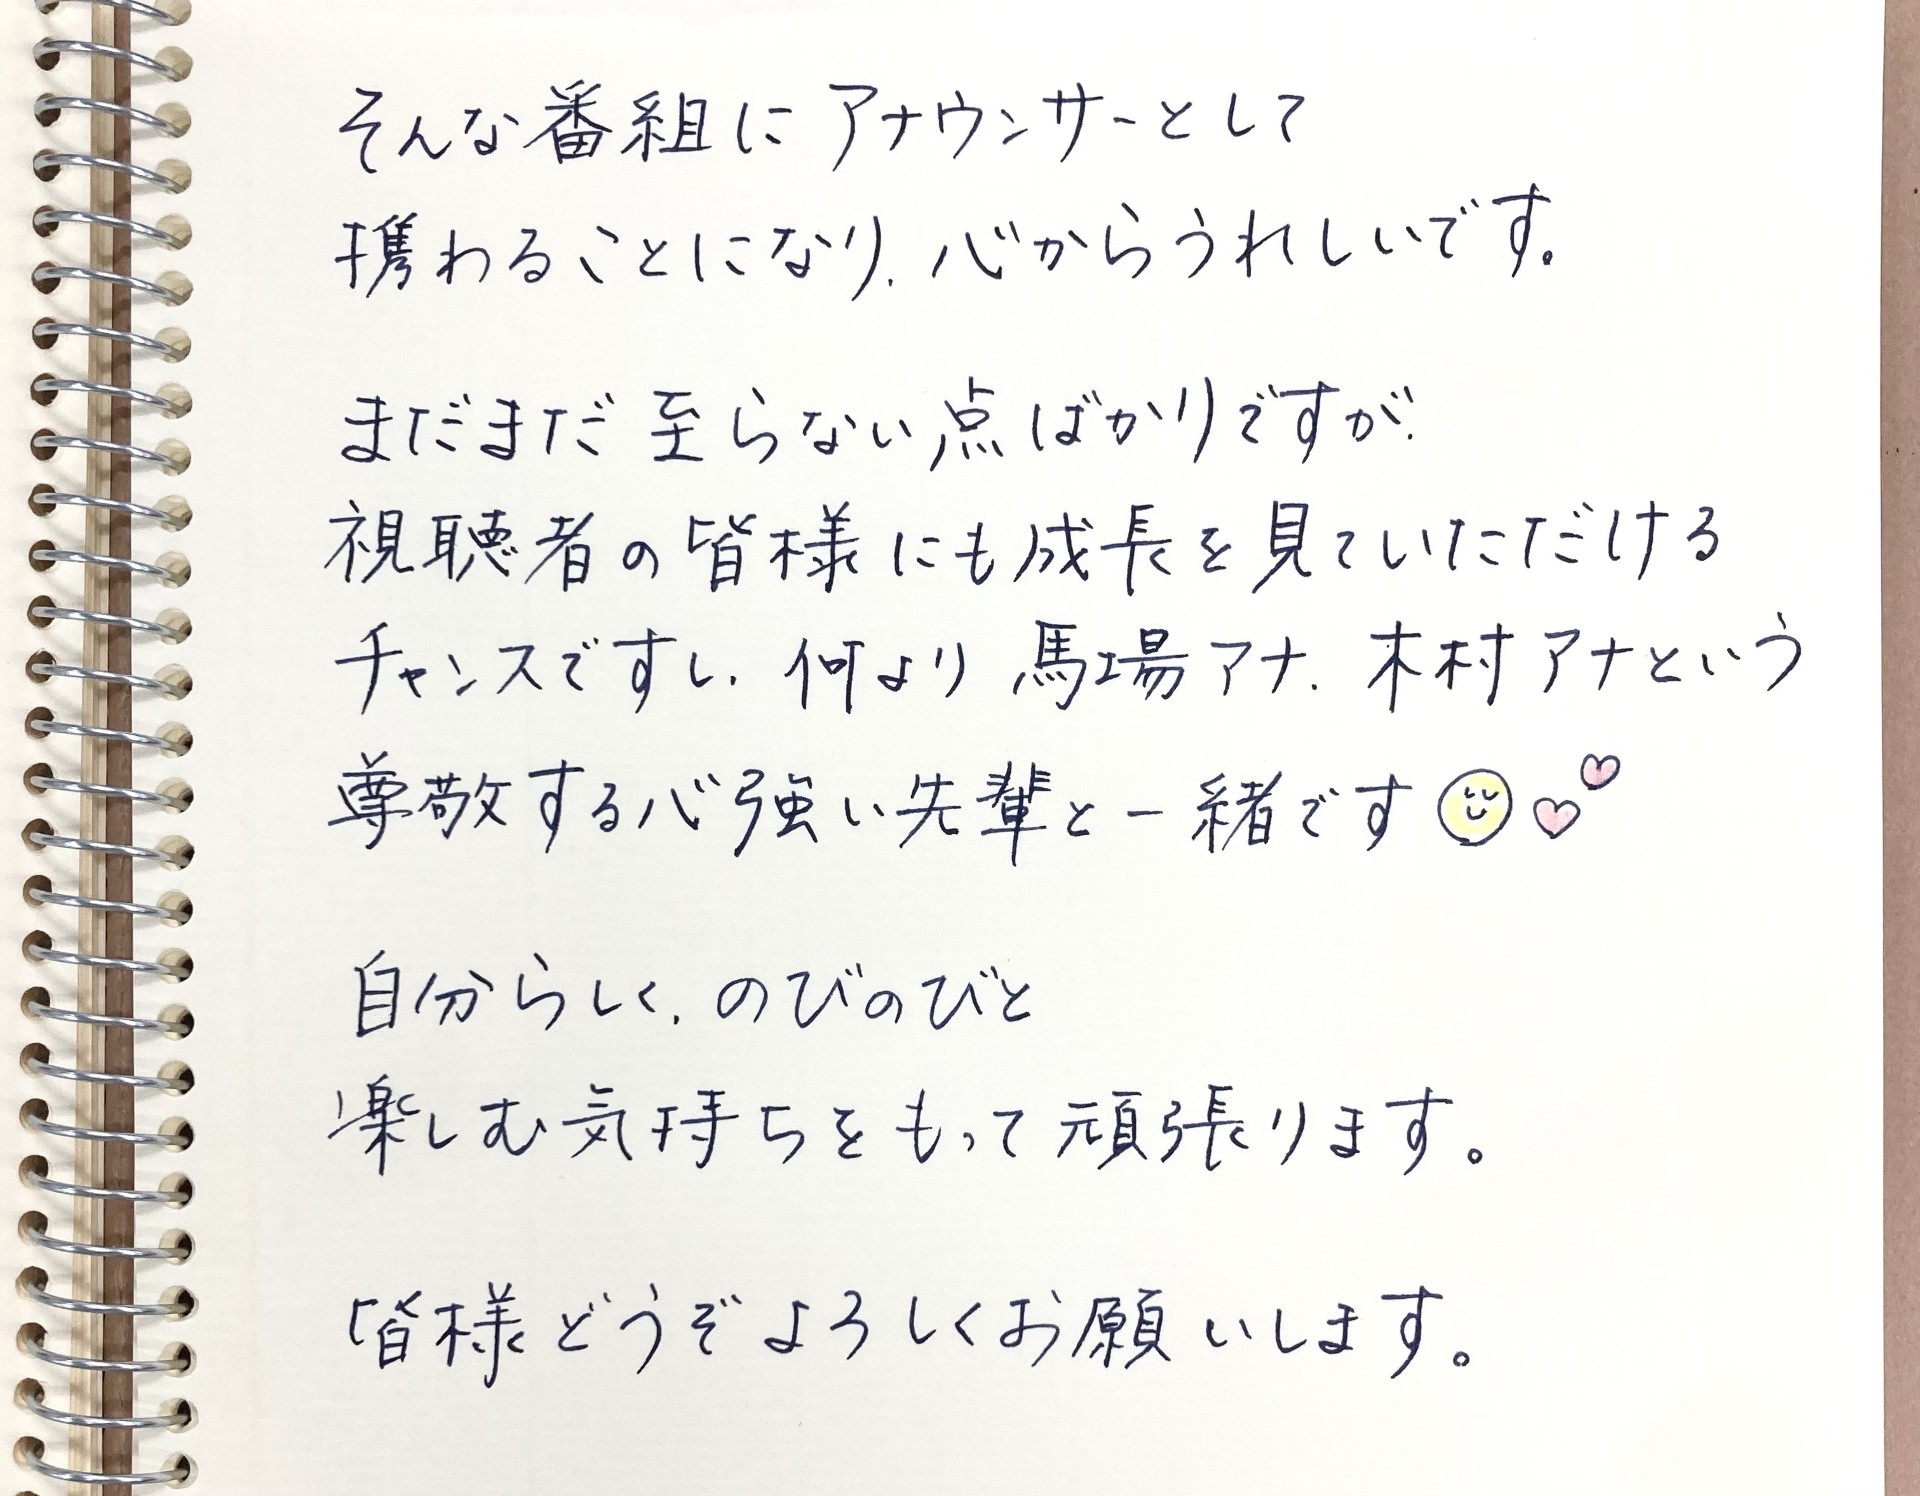 そんな番組にアナウンサーとして
携わることになり、心からうれしいです。
まだまだ至らない点ばかりですが、
視聴者の皆様にも成長を見ていただける
チャンスですし、何より馬場アナ、木村アナという
尊敬する心強い先輩と一緒です
自分らしく、のびのびと
楽しむ気持ちをもって頑張ります。
皆様どうぞよろしくお願いします。